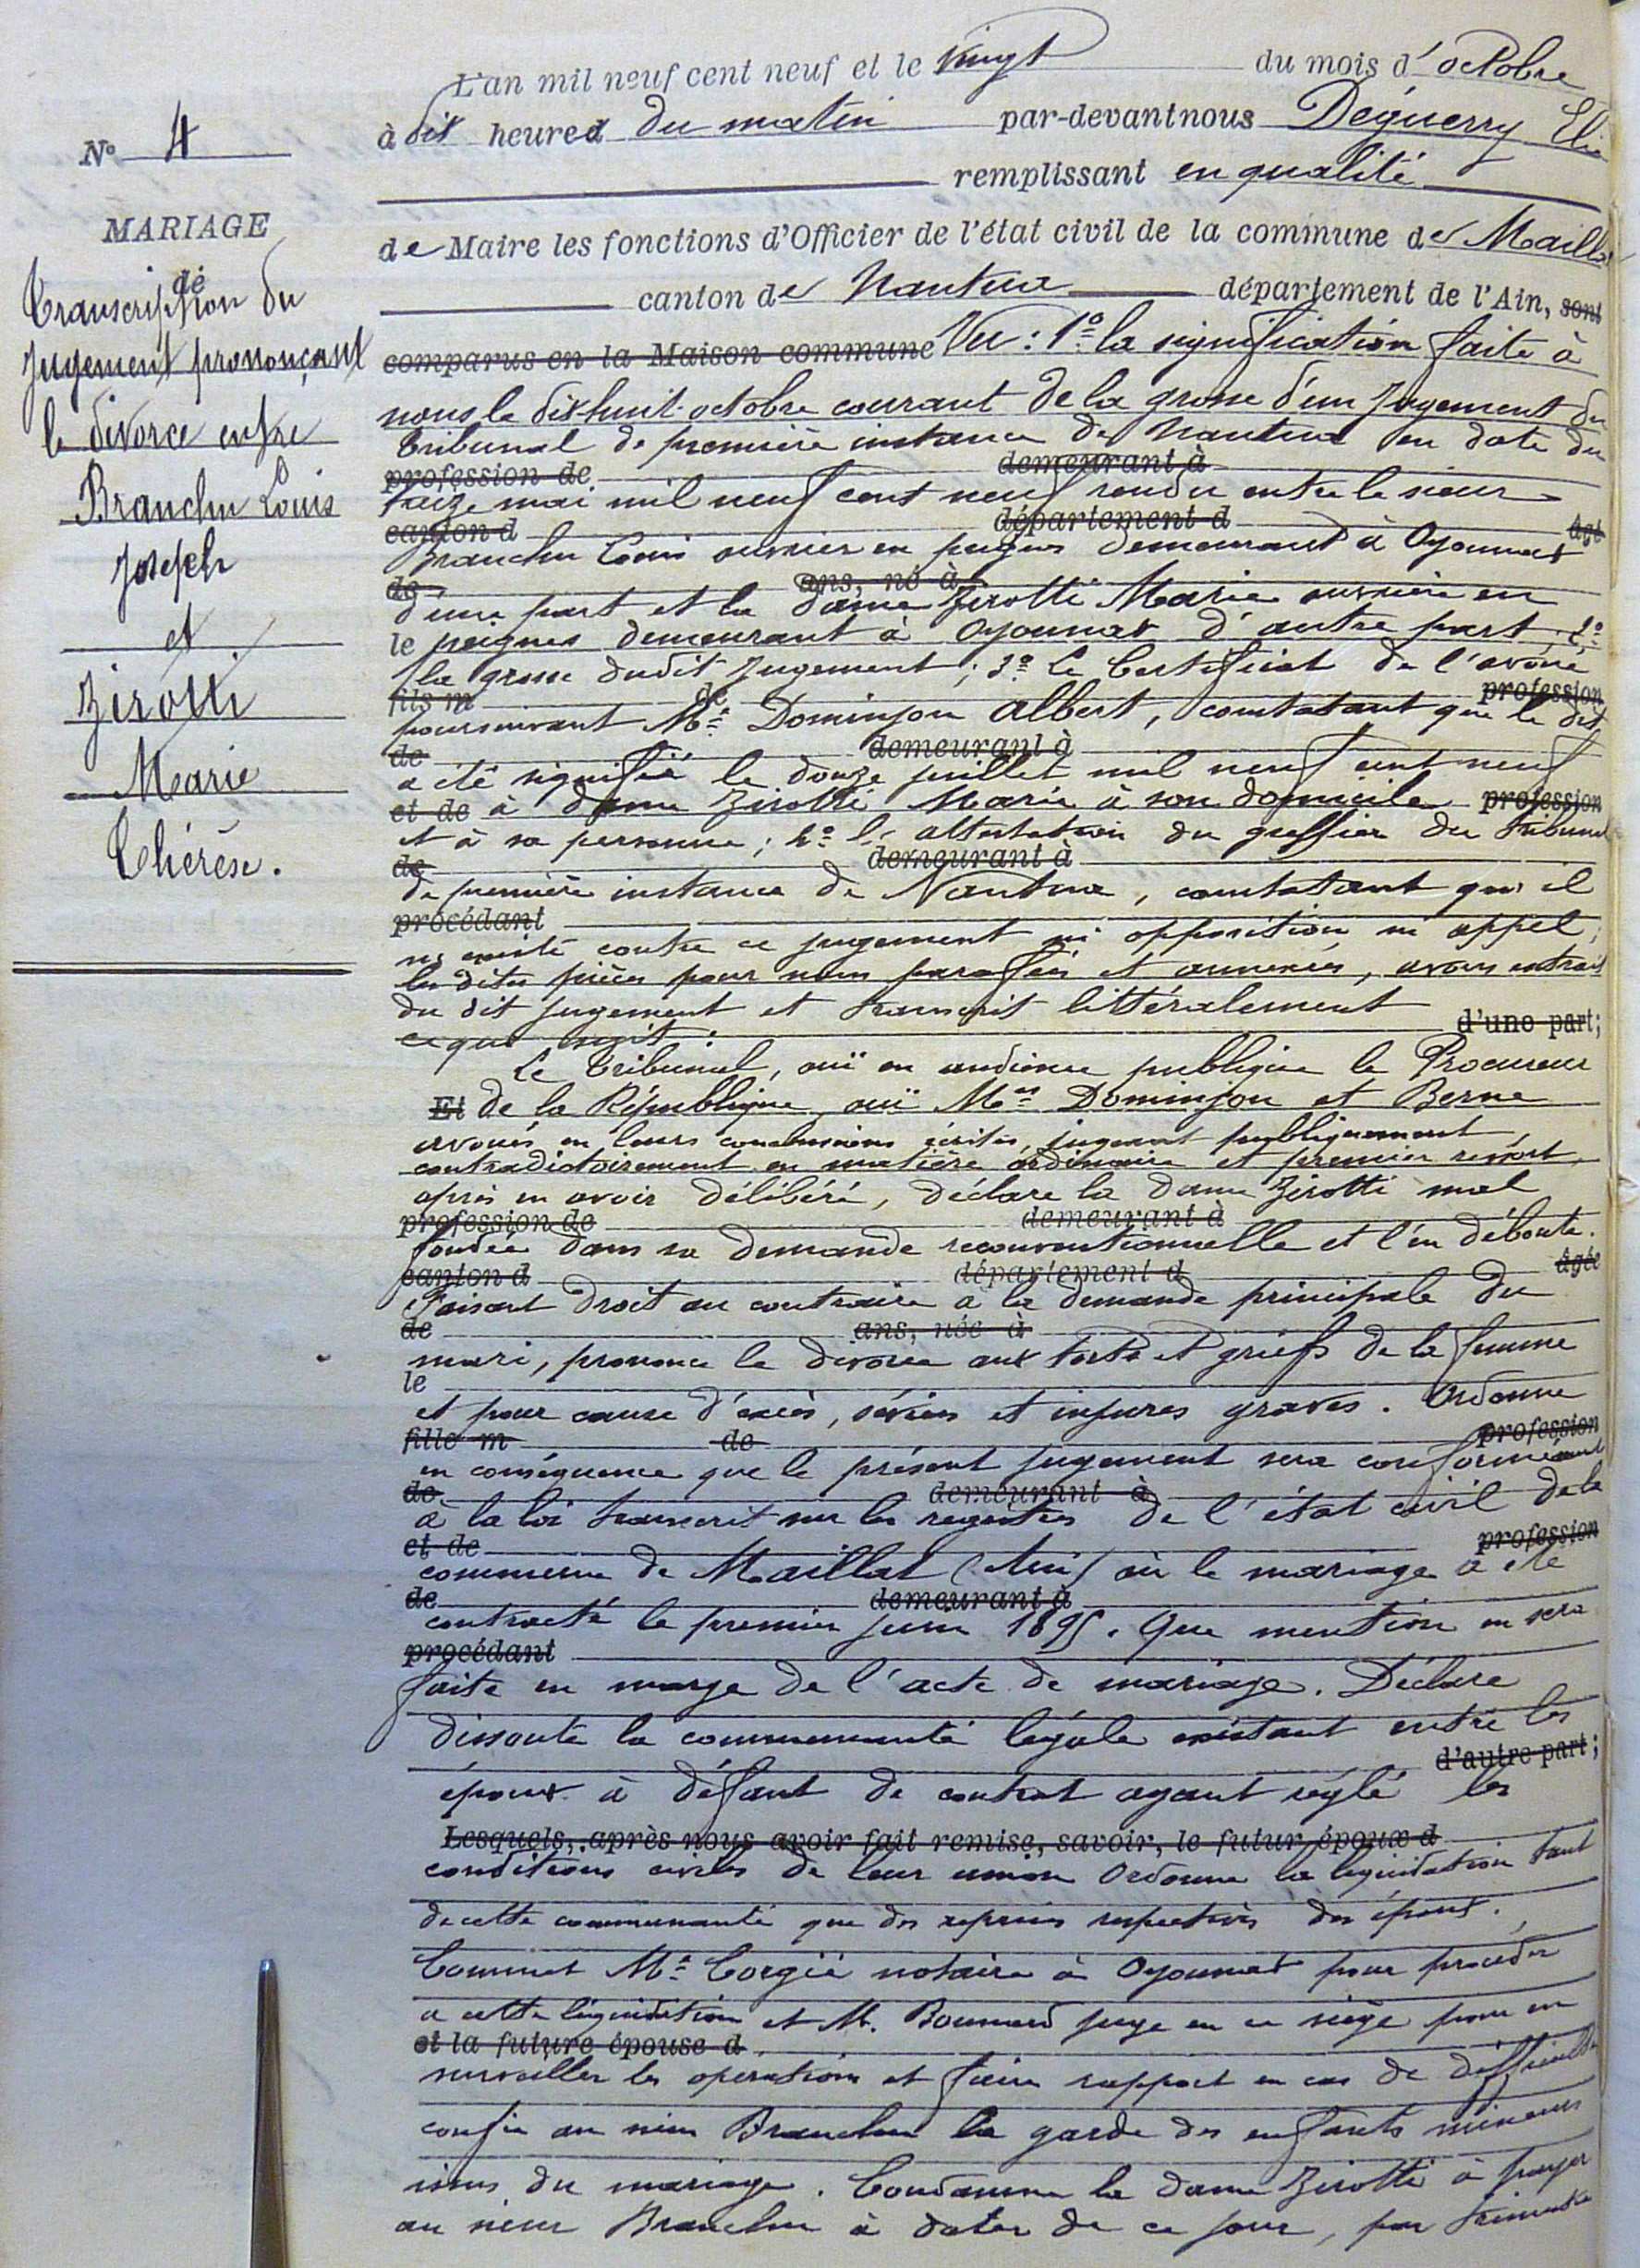 N° 4
MARIAGE
de
Transcription du
Jugement prononçant
le divorce entre
Branchu Louis
Joseph
et
Zirotti
Marie
Thérèse.
L'an mil neuf cent neuf et le vingt du mois d'octobre
à dix heures du matin par-devant nous Déguerry Elie
remplissant en qualité
de Maire les fonctions d'Officier de l'état civil de la commune de Maillat
canton de Nantua département de l'Ain, sont
comparus en la Maison commune Vu : 1° la signification faite à
nous le dix-huit octobre courant de la grosse d'un Jugement du
Tribunal de première instance de Nantua en date du
profession de demeurant à
treize mai mil neuf cent neuf rendu entre le sieur
canton d département d âgé
Branchu Louis ouvrier en peignes demeurant à Oyonnax
de ans, né à
d'une part et la dame Zirotti Marie ouvrière en
le peignes demeurant à Oyonnax d'autre part. 2°
la grosse dudit Jugement ; 3° le Certificat de l'avoué
fils m de profession
poursuivant Me Dominjon Albert, constatant que le dit
de demeurant à
a été signifié le douze juillet mil neuf cent neuf
et de à dame Zirotti Marie à son domicile profession
et à sa personne ; 4° l'attestation du greffier du Tribunal
de demeurant à
de première instance de Nantua, constatant qu'il
procédant
n'existe contre ce jugement ni opposition ni appel ;
les dites pièces pour nous parafées et annexées, avons extrait
du dit jugement et transcrit littéralement
d'une part;
ce qui suit :
Le Tribunal, ouï en audience publique le Procureur
Et de la République, ouï Mes Dominjon et Berne
avoués en leurs conclusions écrites, jugeant publiquement,
contradictoirement en matière ordinaire et premier ressort,
après en avoir délibéré, déclare la dame Zirotti mal
profession de demeurant à
fondée dans sa demande reconventionnelle et l'en déboute.
canton d département d âgée
Faisant droit au contraire à la demande principale du
de ans, née à
mari, prononce le divorce aux torts et griefs de la femme
le
et pour cause d'excès, sévices et injures graves. Ordonne
fille m de profession
en conséquence que le présent jugement sera conformément
de demeurant à
à la loi transcrit sur les registres de l'état civil de la
et de profession
commune de Maillat (Ain) où le mariage a été
de demeurant à
contracté le premier juin 1895. Que mention en sera
procédant
faite en marge de l'acte de mariage. Déclare
dissoute la communauté légale existant entre les
d'autre part;
époux à défaut de contrat ayant réglé les
Lesquels, après nous avoir fait remise, savoir, le futur époux d
conditions civiles de leur union Ordonne la liquidation tant
de cette communauté que des reprises respectives des époux.
Commet Me Corgié notaire à Oyonnax pour procéder
a cette liquidation et M. Bonnard juge en ce siège pour en
et la future épouse d
surveiller les operations et faire rapport en cas de difficultés
confie au sieur Branchu la garde des enfants mineurs
issus du mariage. Condamne la dame Zirotti à payer
au sieur Branchu à dater de ce jour, par trimestre